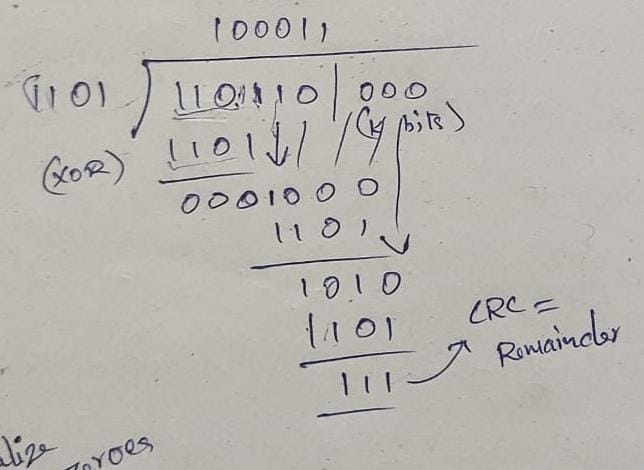 100011
1101 110110 | 000
(XOR) 1101 (k bits)
0001000
1101
1010
1101
111 CRC = Remainder